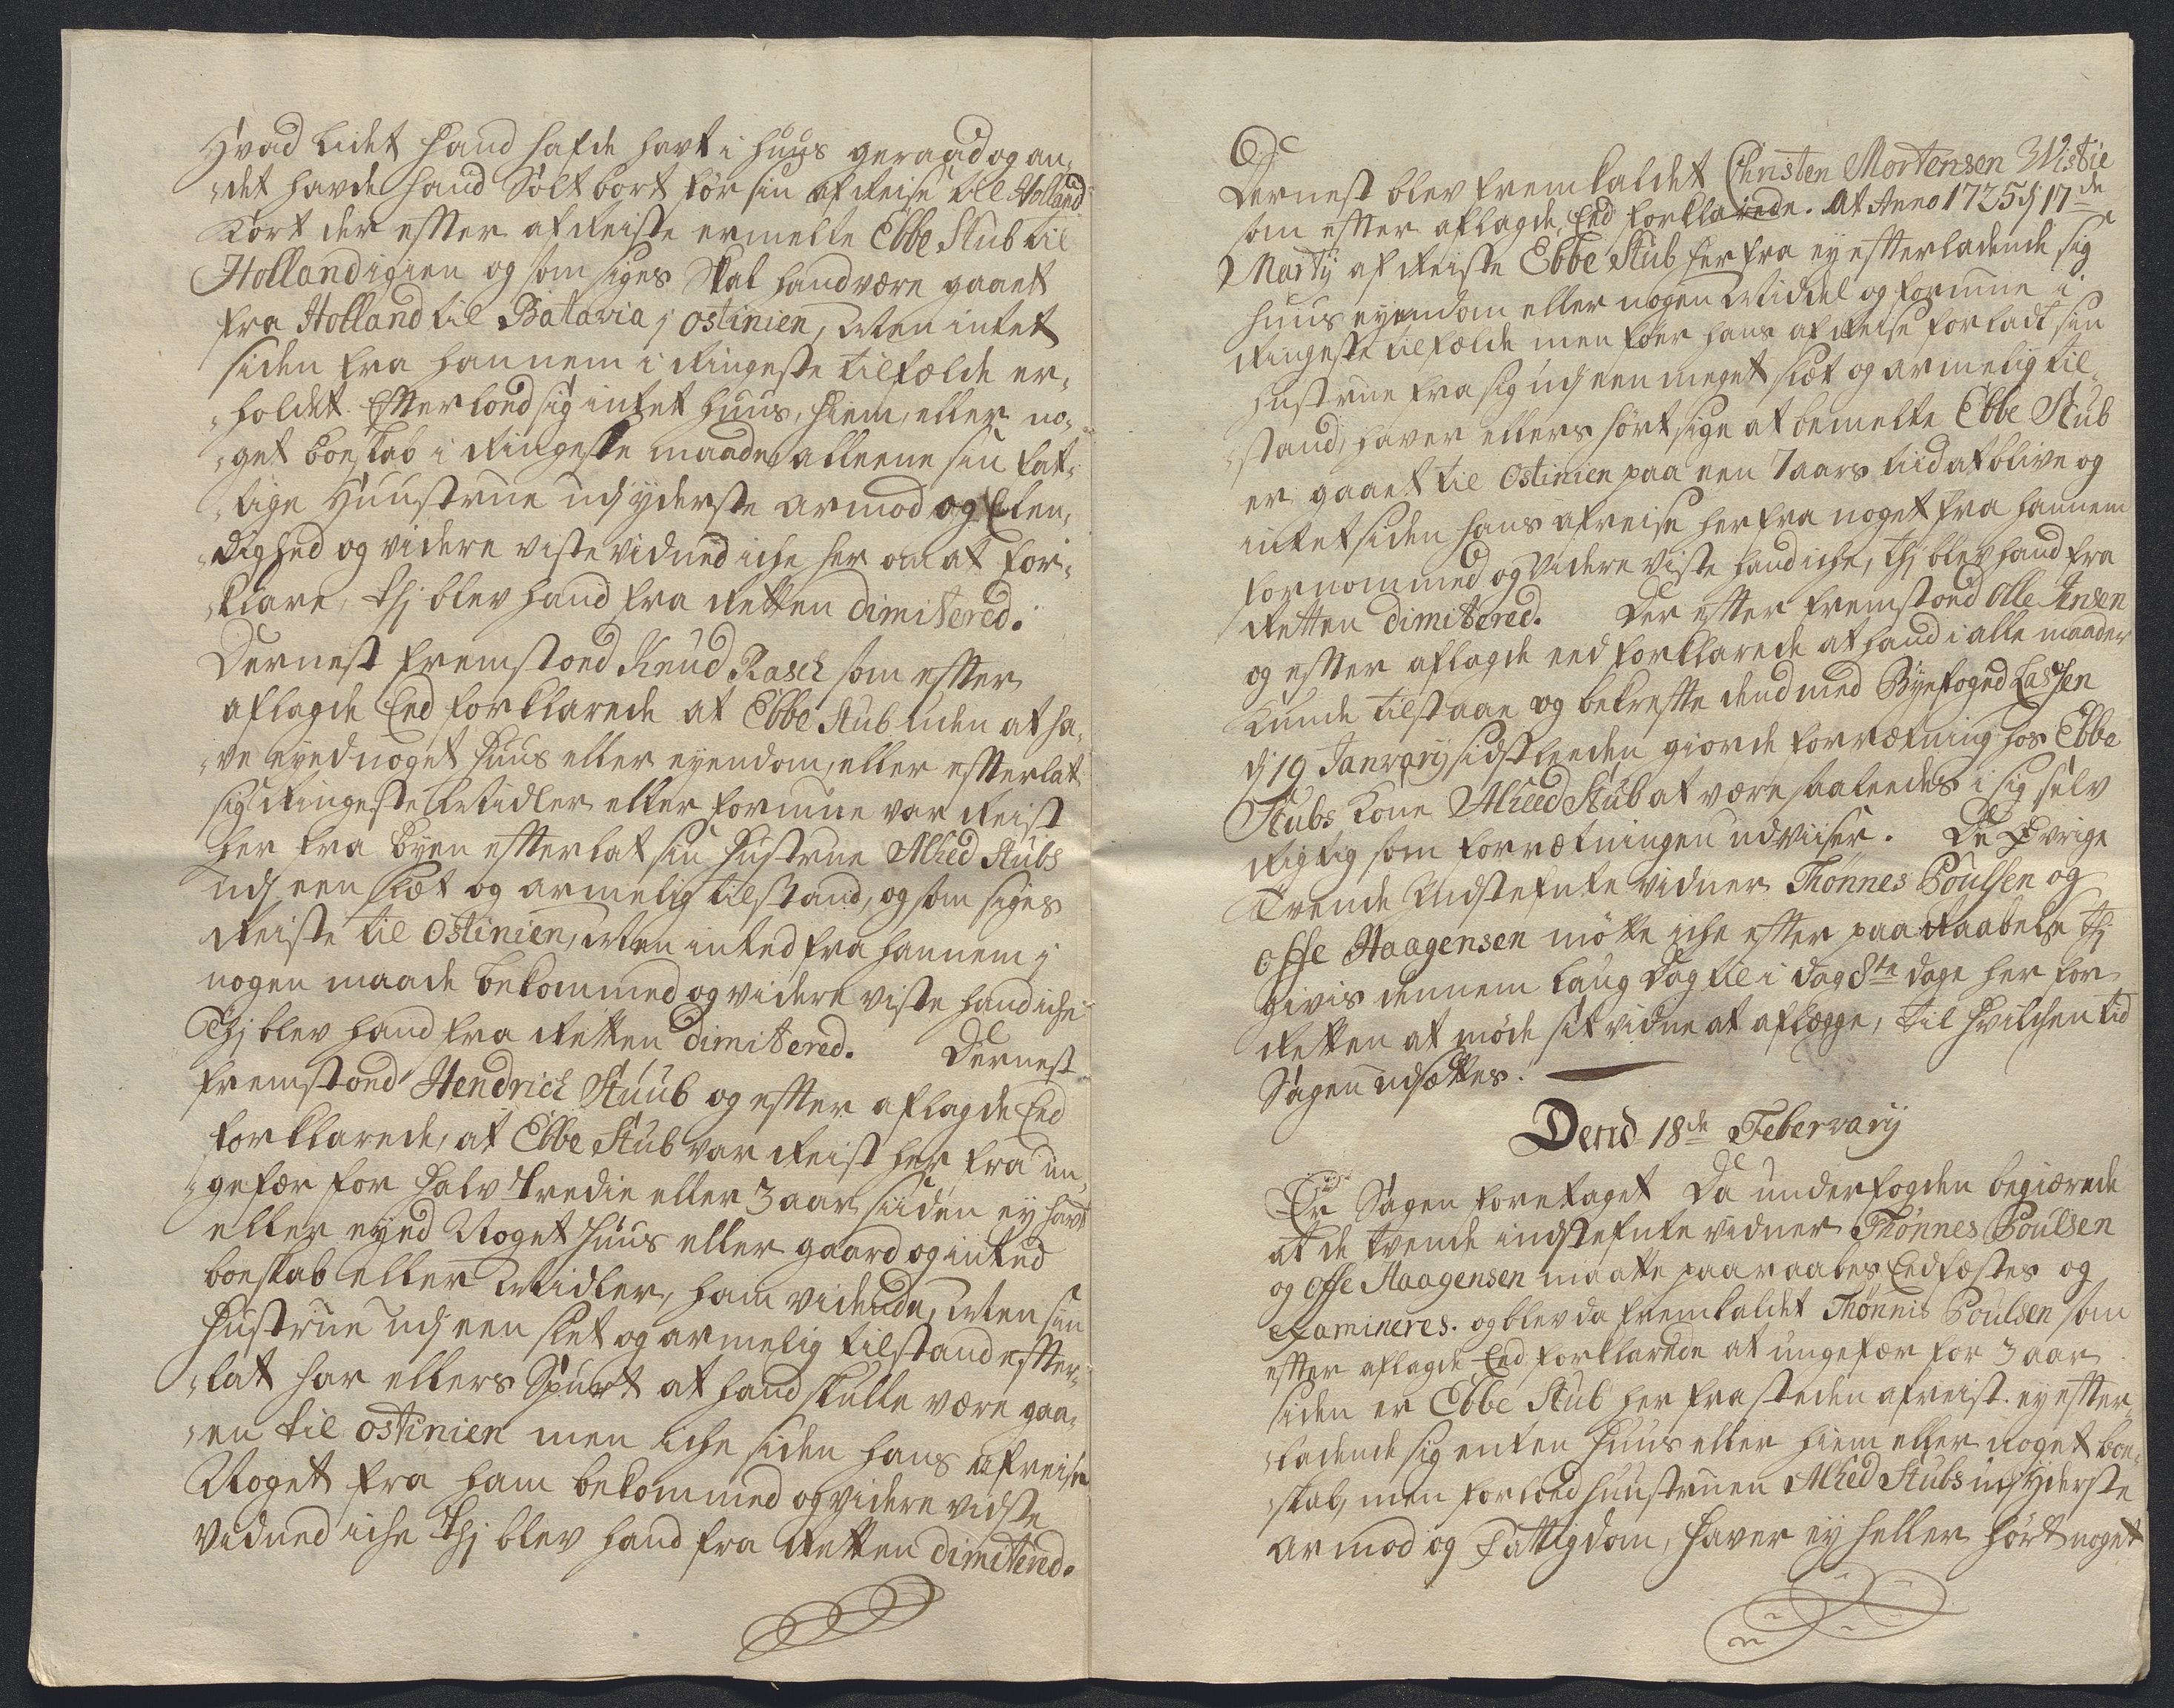 Hvad lidet hand hafde havt i huus geraad og an-
-det havde hand Solt bort før sin afReise til Holland
Kort der effter afReiste ermelte Ebbe Stub til
Holland igien og som siges Skal hand være gaaet
fra Holland til Batavia j ostinien, Men intet
siden fra hannem i Ringeste tilfælde er-
-holdet. Effterloed sig intet huus, hiem, eller no-
-get boeskab i Ringeste maade alleene sin fat-
-tige Huustrue udj yderste armod og Elen-
-dighed og videre viste vidned iche her om at for-
-klare, thj blev hand fra Retten dimitered.
Dernest fremstoed Knud Rasch som effter
aflagde Eed forklarede at Ebbe Stub uden at ha-
-ve eyed noget huus eller eyendom, eller effterlat
sig Ringeste Midler eller formue var Reist
her fra byen effterlat sin Hustrue Alhed Stubs
udj een slæt og armelig tilstand, og som siges
Reiste til Ostinien, Men inted fra hannem j
nogen maade bekommed og videre viste hand iche
Thj blev hand fra Retten dimitered. Dernest
fremstoed Hendrich Stuub og effter aflagde Eed
forklarede, at Ebbe Stub var Reist her fra un-
-gefær for halv tredie eller 3 aar siiden ey havt
eller eyed Noget huus eller gaard og inted
boeskab eller Midler, ham vidende, Men sin
Hustrue udj een slet og armelig tilstand effter-
-lat har ellers Spurt at hand skulle være gaa-
-en til ostinien men iche siden hans afreise
Noget fra ham bekommed og videre vidste
vidned iche thj blev hand fra Retten dimitered.
Dernest blev fremkaldet Christen Mortensen Wistie
som effter aflagde Eed forklarede. At Anno 1725 dj 17de
Martij afReiste Ebbe Stub her fra ey effterladende sig
huus eyendom eller nogen Middel og formue i
Ringeste tilfælde men foer hans afReise forladt sin
Hustrue fra sig udj een meget slæt og armelig til-
-stand, haver ellers hørt sige at bemelte Ebbe Stub
er gaaet til Ostinien paa een 7 aars tiid at blive og
intet siden hans afreise her fra noget fra hannem
fornommed og videre viste hand iche, thj blev hand fra
Retten dimitered. Der effter fremstoed Olle Jensen
og effter aflagde eed forklarede at hand i alle maader
kunde tilstaae og bekreffte dend med Byefoged Lassen
dj 19 Janvarij sidstleeden giorde forretning hos Ebbe
Stubs Kone Alheed Stub at være saaleedes i sig selv
Rigtig som forretningen udviiser. De øvrige
Tvende Indstefnte vidner Thønnes Poulsen og
Offe Haagensen møtte iche effter paaRaabelse thj
givis dennem laug dag til i dag 8te dage her for
Retten at møde sit vidne at aflægge, til hvilchen tid
Sagen udsættes.
Dend 18de Februarij
Er Sagen foretaget Da underfogden begiærede
at de tvende indstefnte vidner Thønnes Poulsen
og Offe Haagensen maatte paaraabes Eedfæstes og
Examineres. og blev da fremkaldet Thønnis Poulsen som
effter aflagde Eed forklarede at ungefær for 3 aar
siden er Ebbe Stub her fra steden afreist. ey effter-
-ladende sig enten huus eller hiem eller noget boe-
-skab, men forloed huustruen Alhed Stubs udj yderste
armod og Fattigdom, haver ey heller hørt noget